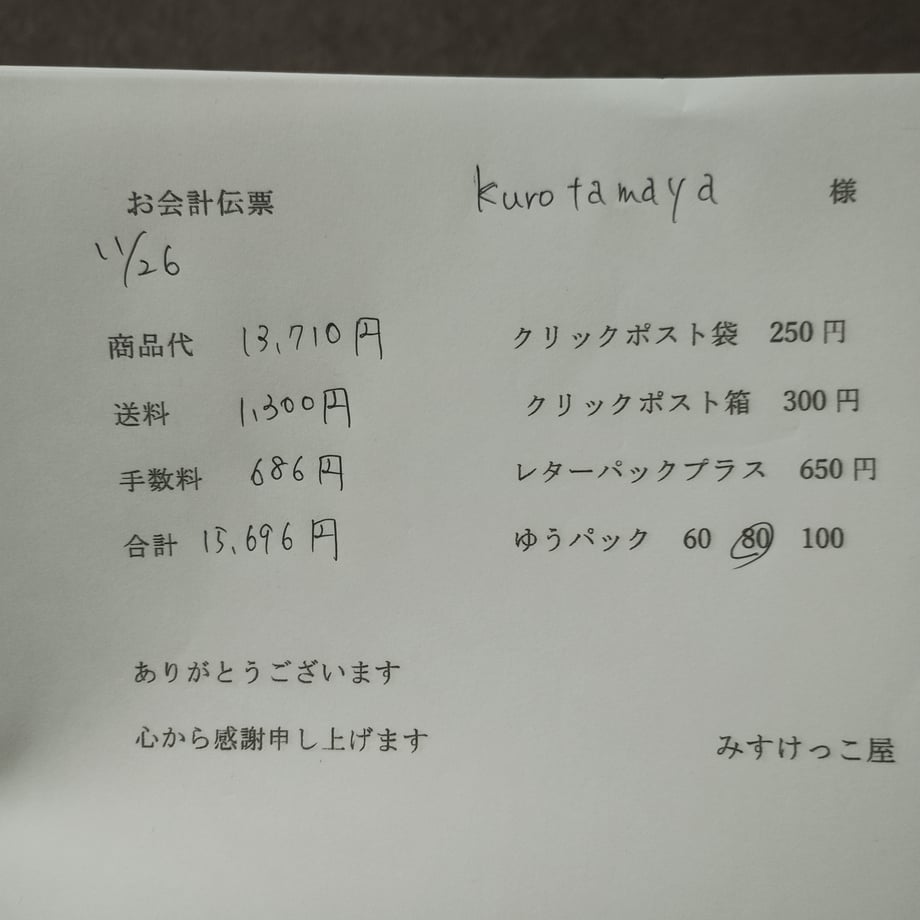 お会計伝票 kurotamaya 様
11/26
商品代 13,710円 クリックポスト袋 250円
送料 1,300円 クリックポスト箱 300円
手数料 686円 レターパックプラス 650円
合計 15,696円 ゆうパック 60 80 100
ありがとうございます
心から感謝申し上げます
みすけっこ屋